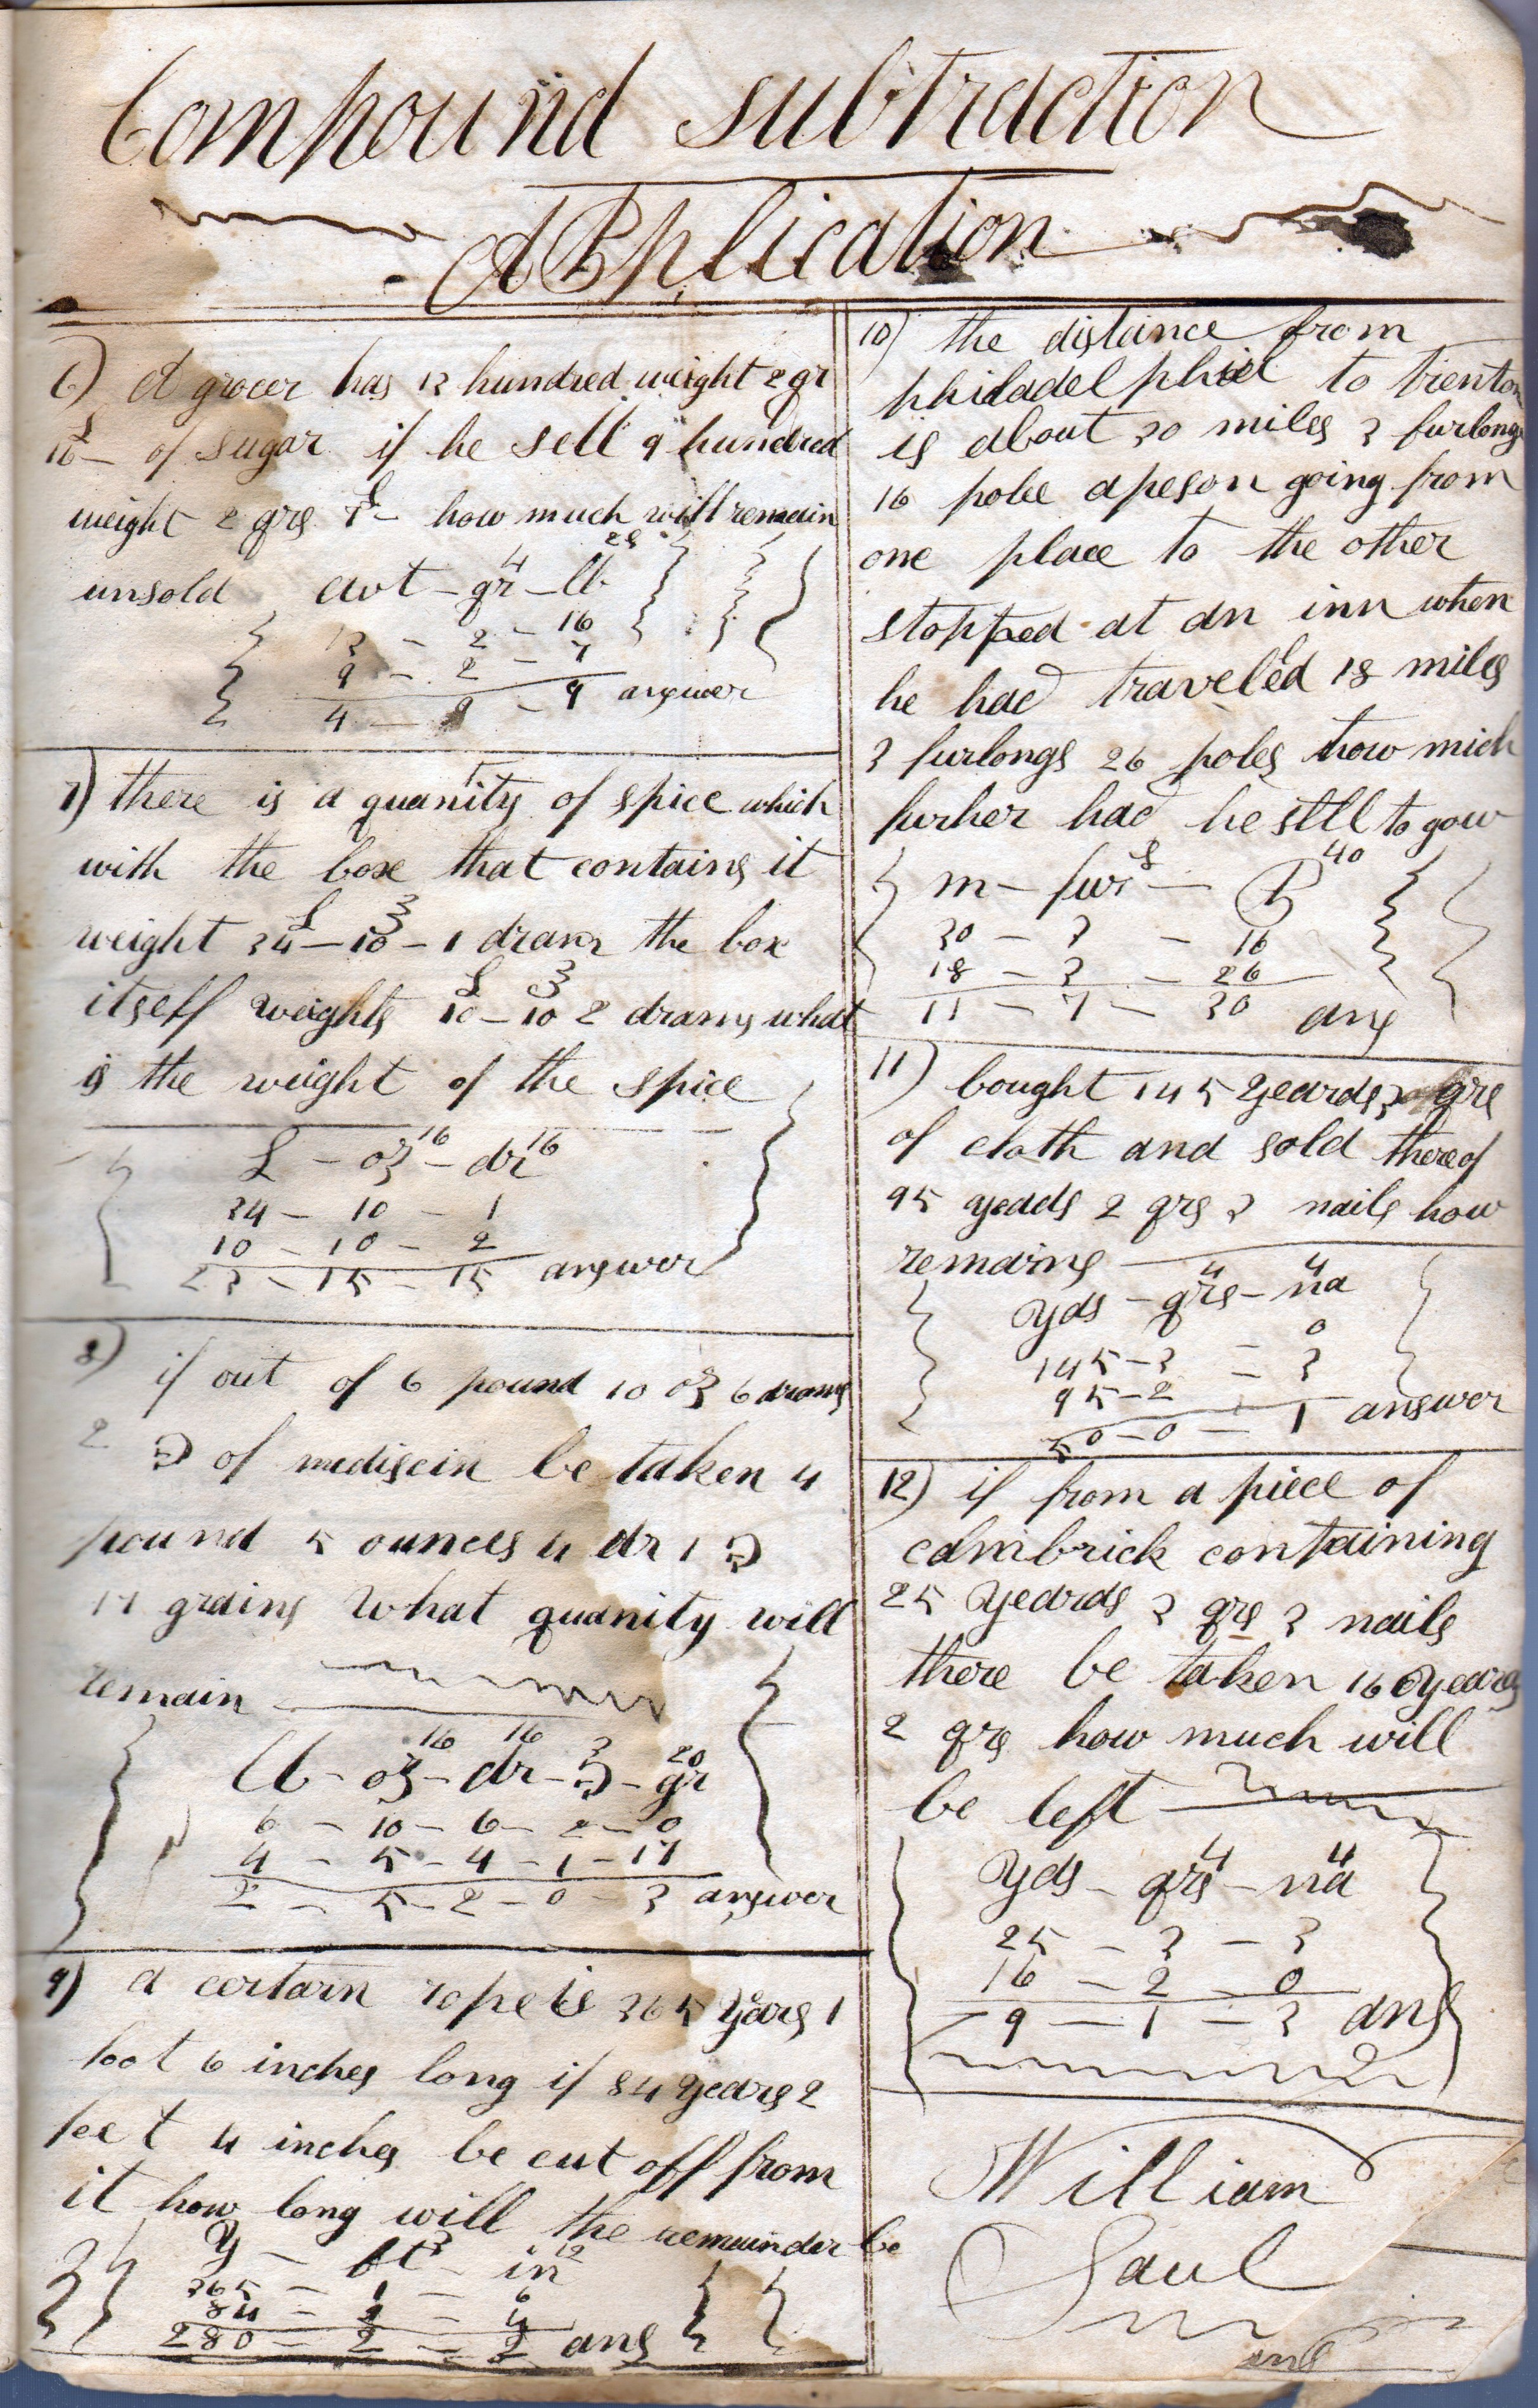 Compound subtraction
Application
6) A grocer has 13 hundred weight 2 qr
16 £ of sugar if he sell 9 hundred
weight 2 qrs 7 £ how much will remain
unsold cwt - qr 4 - lb 28
13 - 2 - 16
9 - 2 - 7
4 - 0 - 9 answer
7) there is a quanity of spice which
with the box that contains it
weight 34 £ - 10 ℥ - 1 dram the box
itself weights 10 £ - 10 ℥ 2 drams what
is the weight of the spice
£ - oz 16 - dr 16
34 - 10 - 1
10 - 10 - 2
23 - 15 - 15 answer
8) if out of 6 pound 10 oz 6 drams
2 ℈ of mediscin be taken 4
pound 5 ounces 4 dr 1 ℈
17 grains what quanity will
remain
lb - oz 16 - dr 16 - ℈ 3 - gr 20
6 - 10 - 6 - 2 - 0
4 - 5 - 4 - 1 - 17
2 - 5 - 2 - 0 - 3 answer
9) a certain rope is 365 yars 1
foot 6 inches long if 84 years 2
feet 4 inches be cut off from
it how long will the remainder be
y - ft 3 - in 12
365 - 1 - 6
84 - 2 - 4
280 - 2 - 2 ans
10) the distance from
philadelphia to trenton
is about 30 miles 3 furlongs
16 pole a peson going from
one place to the other
stopped at an inn when
he had traveled 18 miles
3 furlongs 26 poles how mich
furher had he stll to gow
m - fur 8 - P 40
30 - 3 - 16
18 - 3 - 26
11 - 7 - 30 ans
11) bought 145 yeards 3 qrs
of cloth and sold thereof
95 yeads 2 qrs 3 nails how
remains
yds - qrs 4 - na 4
145 - 3 - 0
95 - 2 - 3
50 - 0 - 1 answer
12) if from a piece of
cambrick contaning
25 yeards 3 qrs 3 nails
there be taken 16 yeards
2 qrs how much will
be left
yds - qrs 4 - na 4
25 - 3 - 3
16 - 2 - 0
9 - 1 - 3 ans
William
Saul